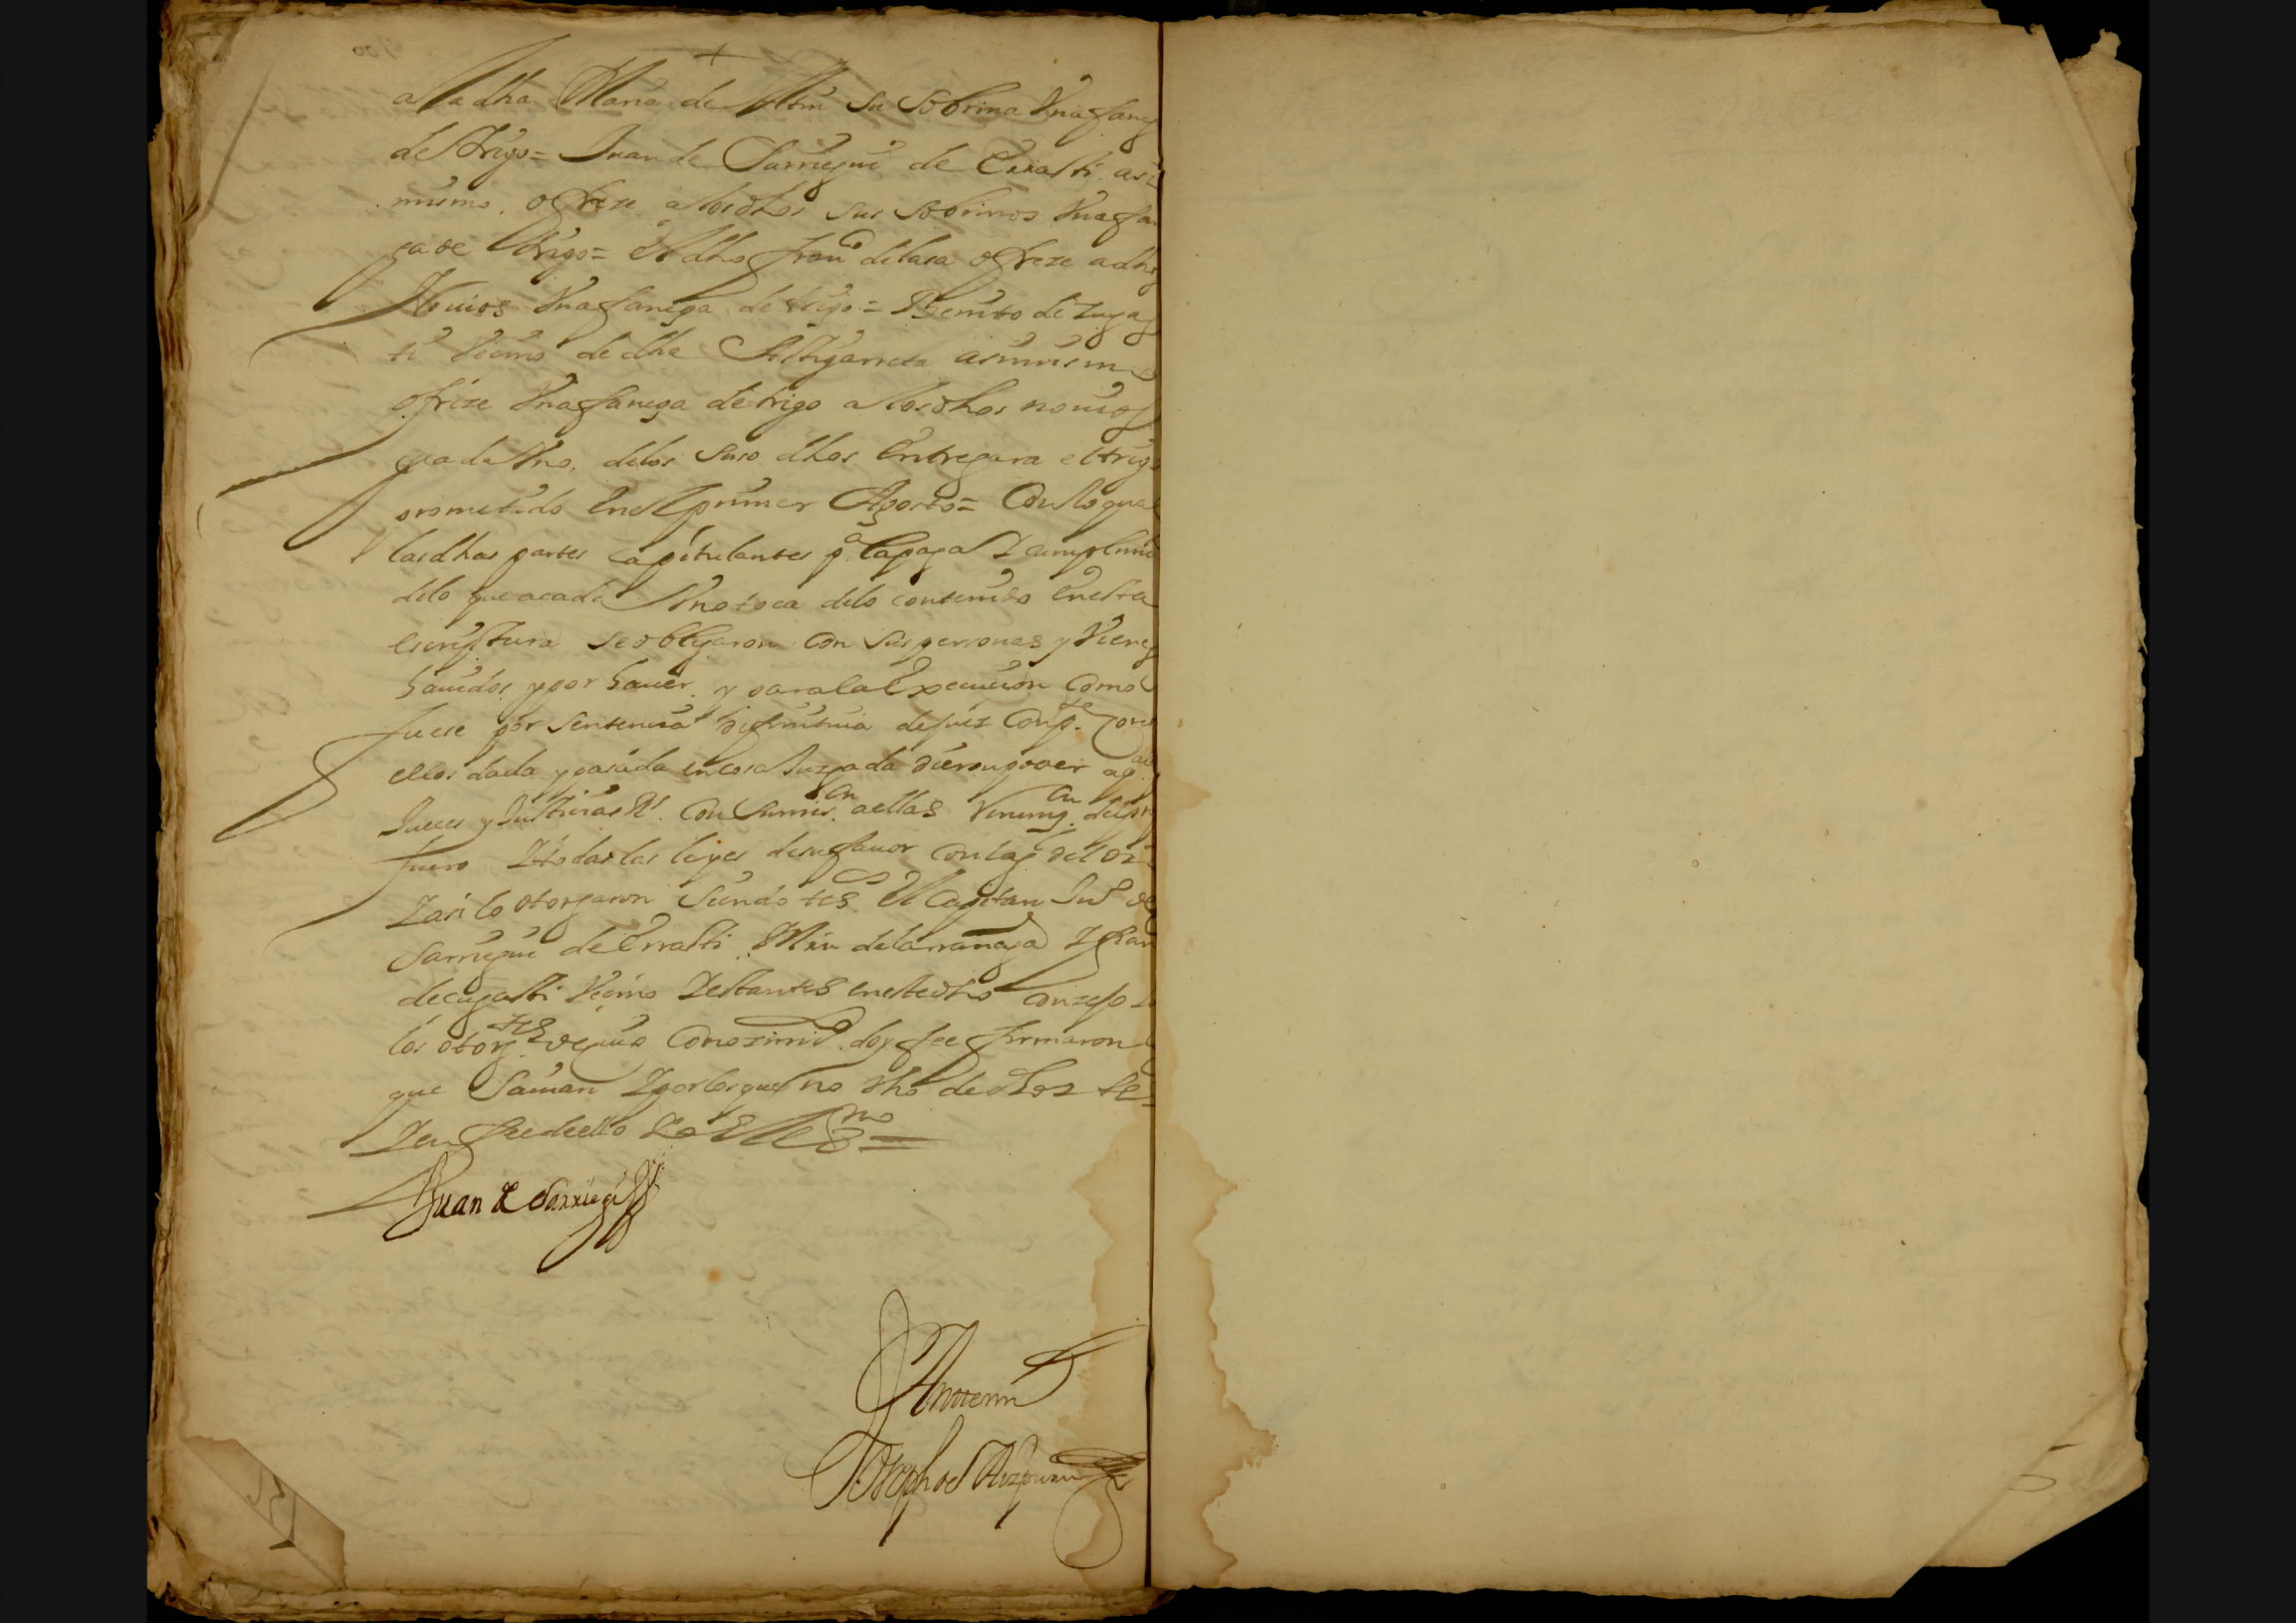 a la dha Maria de su sobrina Vna faneg
de trigo = Juan de Sarriegui de Errasti asi
mismo ofreze a los dhos sus sobrinos Vna fan
ga de trigo = El dho Fran^co de lasa ofreze a dhos
Nouios Vna fanega de trigo = Benito de Zugas
ti Vecino de dha asimismo
ofreze Vna fanega de trigo a los dhos nouios
cada Vno de los suso dhos entregara el trigo
prometido en el primer Agosto = Con lo qual
las dhas partes capitulantes p^a la paga Y cumplimi
delo que acada Vno toca delo contenido en esta
escriptura se obligaron con sus personas y Vienes
hauidos y por hauer y para la Execucion como
fuese por sentencia difinitiua de juez Comp^te contra
ellos dada y pasada en cosa Juzgada dieron poder a
Jueces y Justicias R^s con sumis^on a ellas Renunz^on del pr
fuero Y todas las leyes de su fauor con la q^e del
Y asi lo otorgaron siendo t^os El Capitan Ju^o de
Sarriegui de Errasti Min de larranaga Y Fran
de cugasti Vecino Y estantes en este dho conzejo Y
los otorg^tes de cuio conozimi^to doy fee firmaron
que sauian Y por los que no Vno de dhos te
Y en fee de ello Yo el es^no =
Juan de Sarriegui
Ante mi
Joseph de Aizpuru